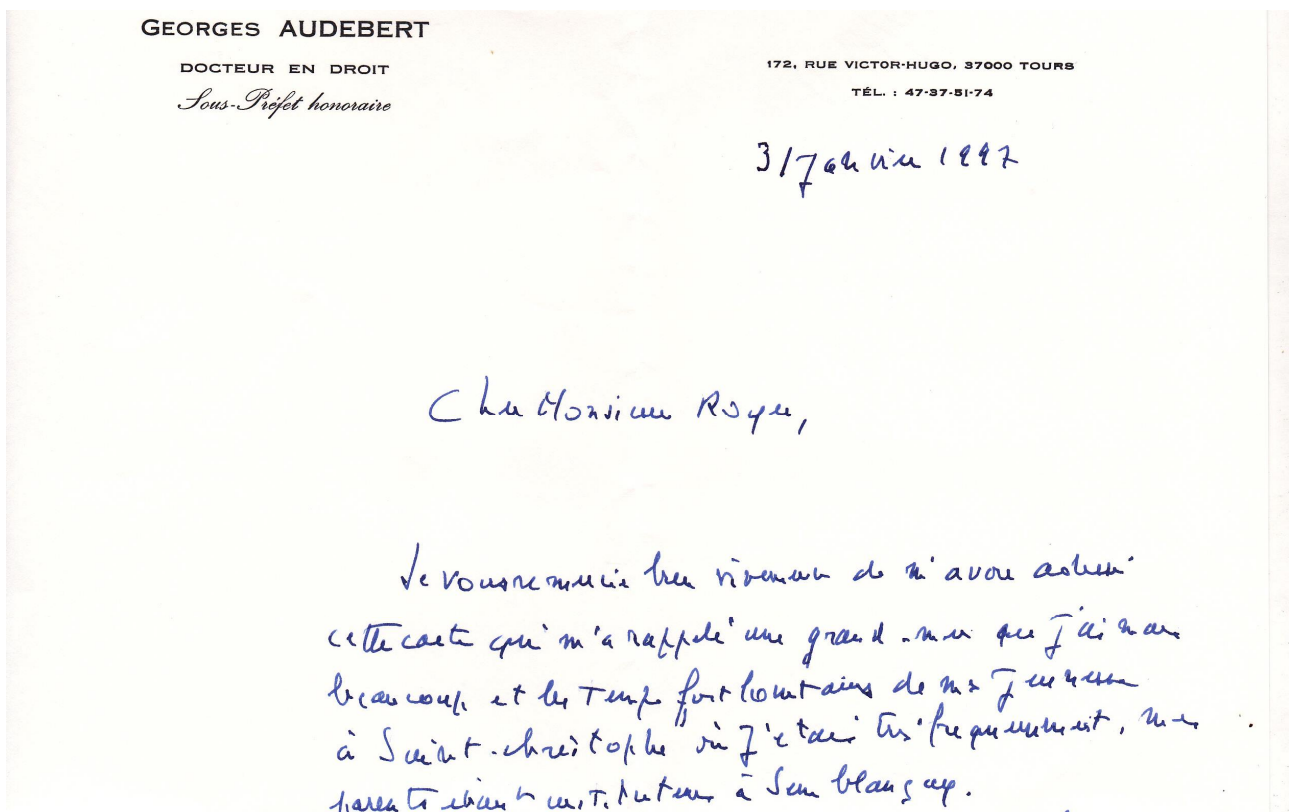 GEORGES AUDEBERT
DOCTEUR EN DROIT
Sous-Préfet honoraire
172, RUE VICTOR-HUGO, 37000 TOURS
TÉL. : 47-37-51-74
3/Janvier 1997
Cher Monsieur Royer,
Je vous remercie bien vivement de m'avoir adressé
cette carte qui m'a rappelé une grand-mère que j'aimais
beaucoup et les temps fort lointains de ma jeunesse
à Saint-Christophe où j'étais très fréquemment, mes
parents étant instituteurs à Semblançay.